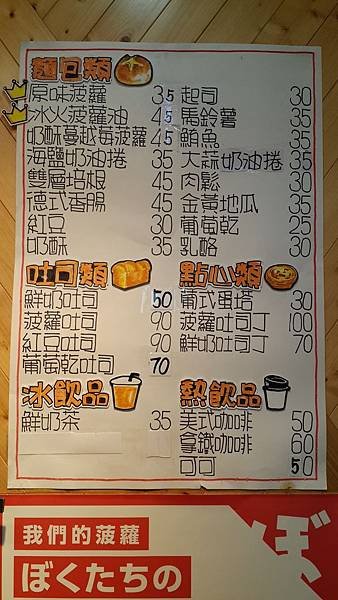 麵包類
原味菠蘿 35
冰火菠蘿油 45
奶酥蔓越莓菠蘿 45
海鹽奶油捲 35
雙層培根 45
德式香腸 45
紅豆 30
奶酥 35
起司 30
馬鈴薯 35
鮪魚 35
大蒜奶油捲 35
肉鬆 30
金黃地瓜 35
葡萄乾 25
乳酪 30
吐司類
鮮奶吐司 50
菠蘿吐司 90
紅豆吐司 90
葡萄乾吐司 70
點心類
葡式蛋塔 30
菠蘿吐司丁 100
鮮奶吐司丁 70
冰飲品
鮮奶茶 35
熱飲品
美式咖啡 50
拿鐵咖啡 60
可可 50
我們的菠蘿
ぼくたちの
ぼ